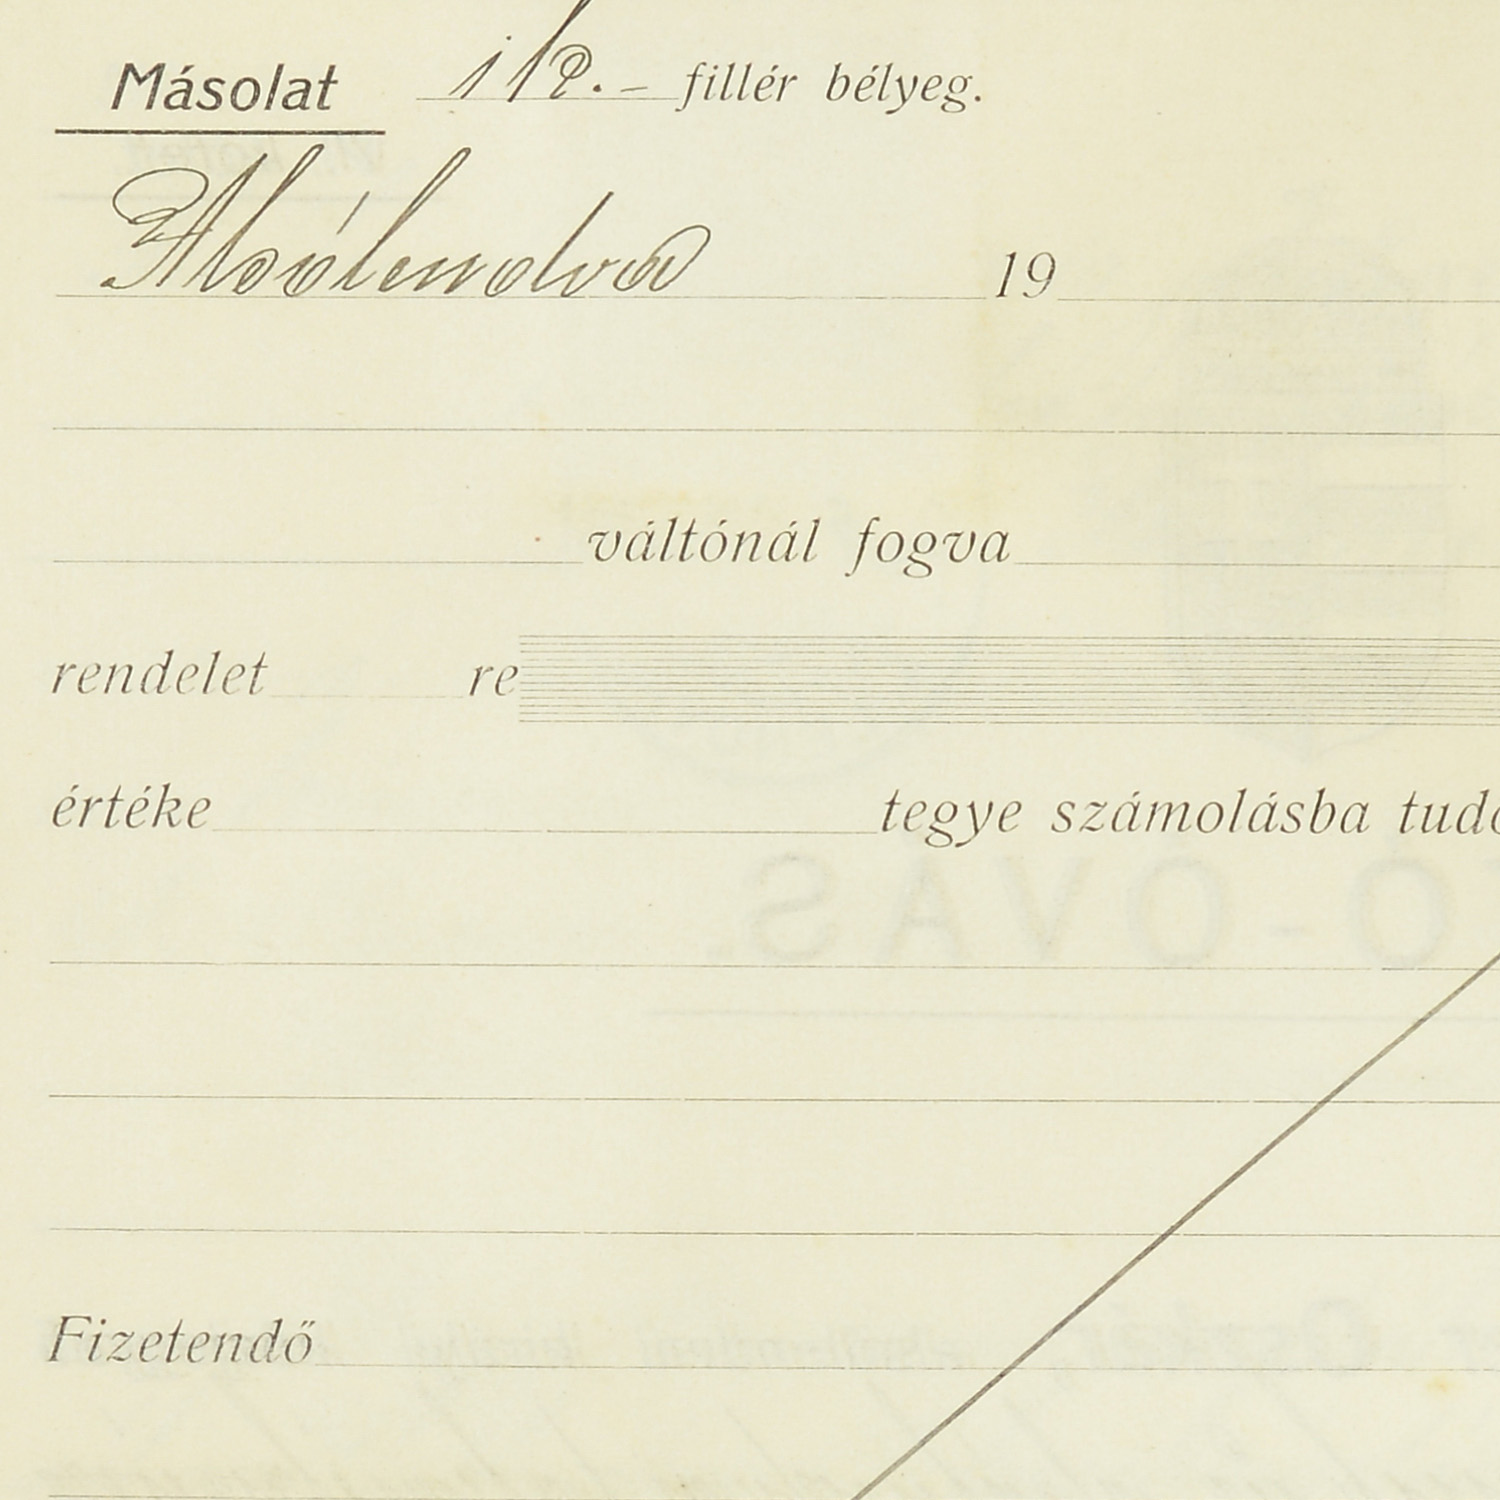 Másolat fillér bélyeg.
Alsólendva 19
váltónál fogva
rendelet re
értéke tegye számolásba tudó
Fizetendő